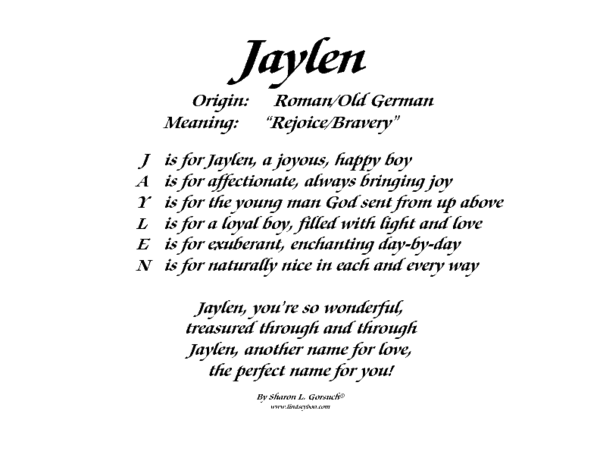 Jaylen
Origin: Roman/Old German
Meaning: "Rejoice/Bravery"
J is for Jaylen, a joyous, happy boy
A is for affectionate, always bringing joy
Y is for the young man God sent from up above
L is for a loyal boy, filled with light and love
E is for exuberant, enchanting day-by-day
N is for naturally nice in each and every way
Jaylen, you're so wonderful,
treasured through and through
Jaylen, another name for love,
the perfect name for you!
By Sharon L. Gorsuch©
www.lindseyboo.com